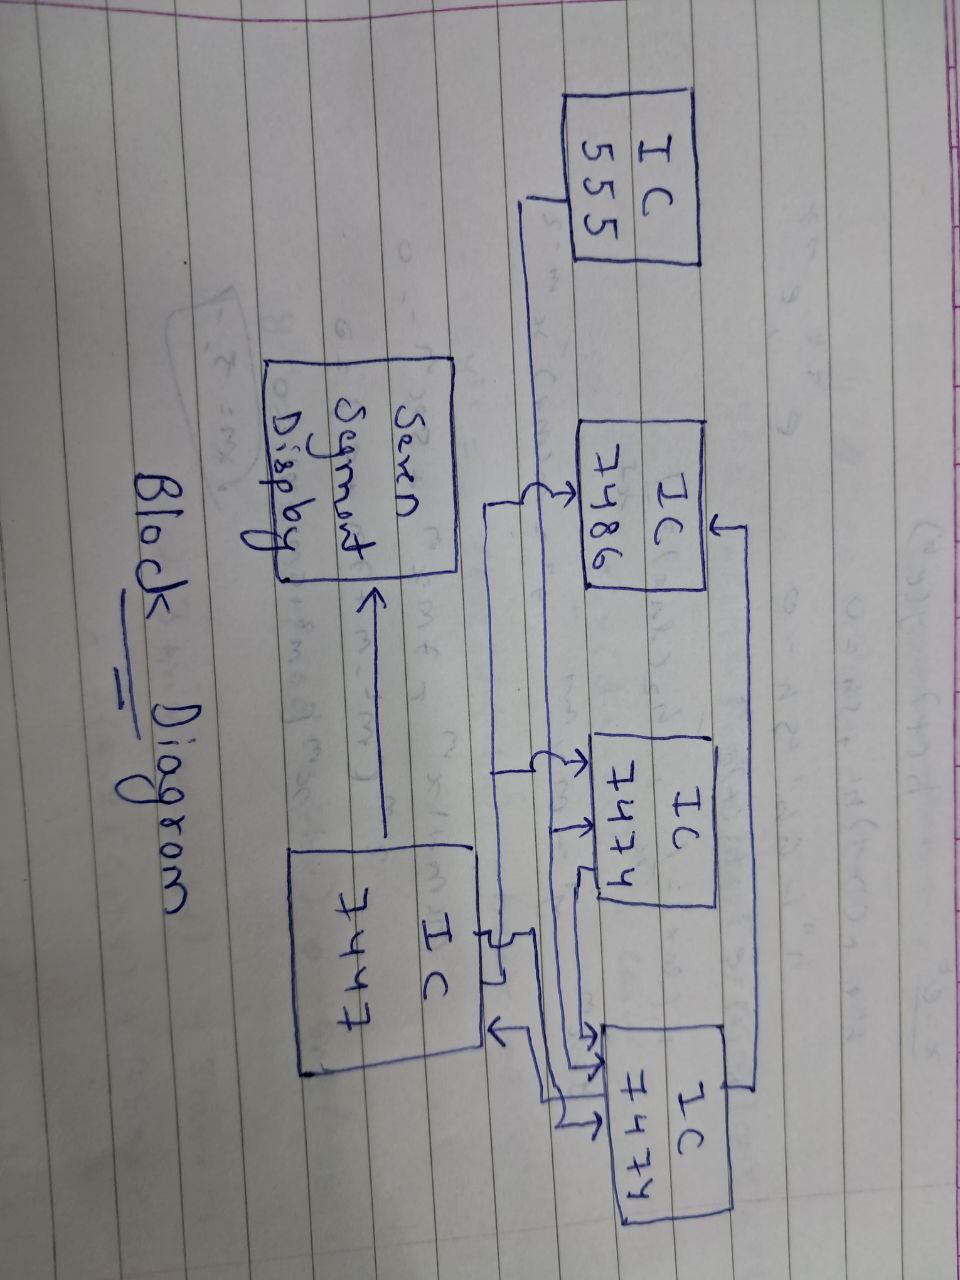 IC
555
IC
7486
IC
7474
IC
7474
Seven
Segment
Display
IC
7447
Block Diagram